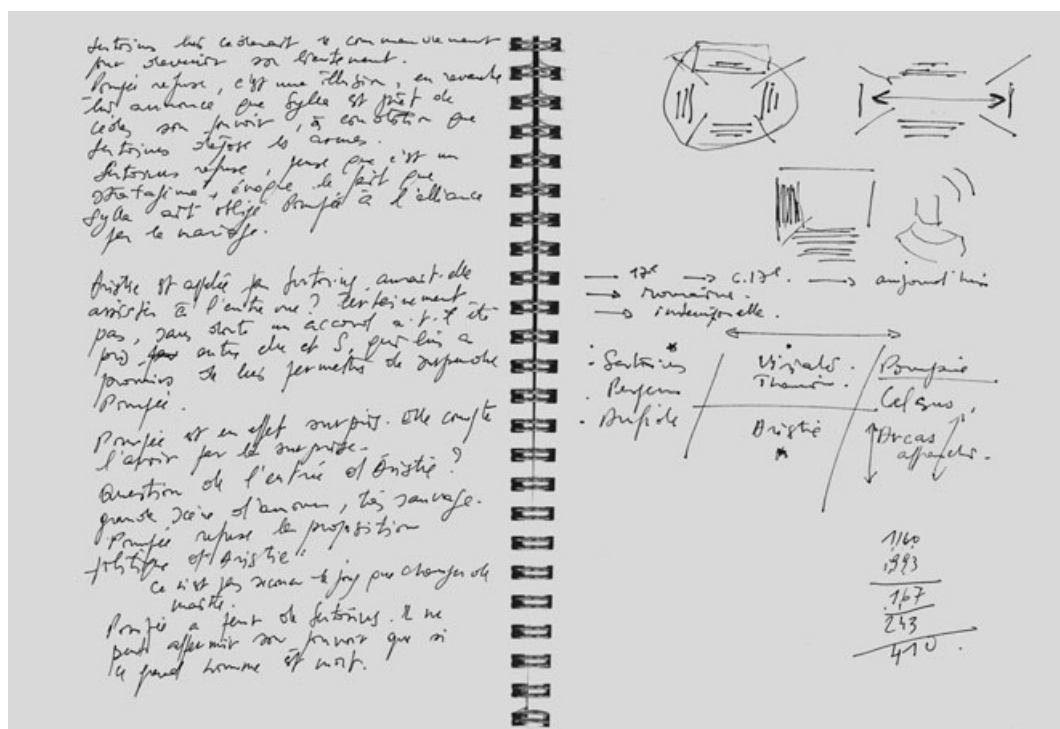 Sertorius lui cèderait le commandement
pour devenir son lieutenant.
Pompée refuse, c'est une illusion, en revanche
lui annonce que Sylla est prêt de
céder son pouvoir, à condition que
Sertorius dépose les armes.
Sertorius refuse, pense que c'est un
stratagème, évoque le fait que
Sylla ait obligé Pompée à l'alliance
par le mariage.
Aristie est appelée par Sertorius, aurait-elle
assister à l'entrevue ? Certainement
pas, sans doute un accord a-t-il été
pris entre elle et S. qui lui a
promis de lui permettre de surprendre
Pompée.
Pompée est en effet surpris. Elle compte
l'avoir par la surprise.
Question de l'entrée d'Aristie ?
grande scène d'amour, très sauvage.
Pompée refuse la proposition
politique d'Aristie
ce n'est pas secouer le joug que changer de
maître.
Pompée a peur de Sertorius. Il ne
peut affermir son pouvoir que si
ce grand homme est mort.
→ 17e → c.17e. → aujourd'hui
→ romaine.
→ intemporelle.
- Sertorius * / Viriate * / Pompée
. Perpenna / Thamire. / Celsus,
- Aufide / Aristie * / Arcas affranchi.
1160
993
167
243
410.